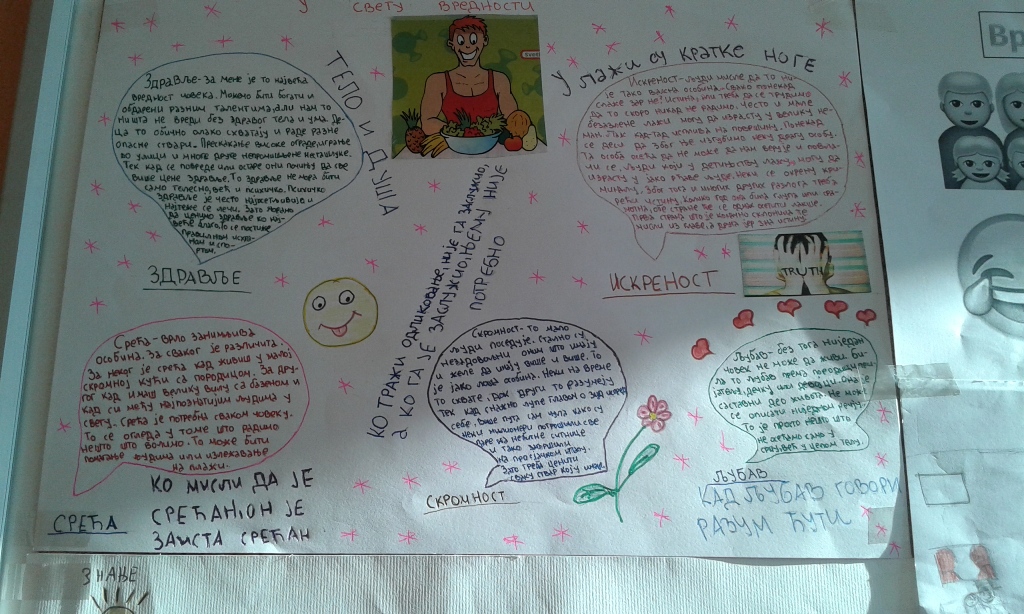 У СВЕТУ ВРЕДНОСТИ
Здравље - за мене је то највећа
вредност човека. Можемо бити богати и
обдарени разним талентима, али нам то
ништа не вреди без здравог тела и ума. Де-
ца то обично олако схватају и раде разне
опасне ствари. Прескакање високе ограде, играње
по улици и многе друге непромишљене
Тек кад се повреде или остаре они почињу да све
више цене здравље. То здравље не мора бити
само телесно, већ и психичко. Психичко
здравље је често најжетљивије и
најтеже се лечи. Зато морамо
да ценимо здравље ко нај-
веће благо. То се постиже
правилном исхра-
ном и спо-
ртом.
ЗДРАВЉЕ
ТЕЛО И ДУША
У ЛАЖИ СУ КРАТКЕ НОГЕ
Искреност - људи мисле да то ни-
је тако важна особина. Свако понекад
слаже зар не? Истина, али треба да се трудимо
да то скоро никад не радимо. Често и мале
безазлене лажи могу да израсту у велику не-
ман. Пак кад-тад исплива на површину. Понекад
се деси да због ње изгубимо неку драгу особу.
Та особа осећа да не може да нам верује и
се. Људи који у детињству лажу, могу да
израсту у јако људе. Неки се окрену кри-
миналу. Због тога и многих других разлога треба
рећи истину. Колико год она била глупа или
обе стране ће се одмах осетити лакше.
Прва страна што је коначно склонила те
мисли из главе, а друга јер зна истину.
ИСКРЕНОСТ
TRUTH
КО ТРАЖИ ОДЛИКОВАЊЕ, НИЈЕ ГА ЗАСЛУЖИО,
А КО ГА ЈЕ ЗАСЛУЖИО, ЊЕМУ НИЈЕ
ПОТРЕБНО
Срећа - врло занимљива
особина. За сваког је различита.
За неког је срећа кад живиш у малој
скромној кући са породицом. За дру-
гог кад имаш велику вилу са базеном и
кад си међу најпознатијим људима у
свету. Срећа је потребна сваком човеку.
То се огледа у томе што радимо
нешто што волимо. То може бити
помагање људима или излежавање
на плажи.
СРЕЋА
КО МИСЛИ ДА ЈЕ
СРЕЋАН, ОН ЈЕ
ЗАИСТА СРЕЋАН
Скромност - то мало
људи поседује. Стално су
незадовољни оним што имају
и желе да имају више и више. То
је јако лоша особина. Неки на време
то схвате, док други то разумеју
тек кад снажно лупе главом о зид испред
себе. Више пута сам чула како су
неки милионери потрошили све
паре на небитне ситнице
и тако завршили
на просјачком штапу.
Зато треба ценити
сваку ствар коју имаш.
СКРОМНОСТ
Љубав - без тога ниједан
човек не може да живи. Би-
ла то љубав према породици,
дечку или девојци. Она је
саставни део живота. Не може
се описати ниједном речју.
То је просто нешто што
не осећамо само у
срцу, већ у целом телу.
ЉУБАВ
КАД ЉУБАВ ГОВОРИ
РАЗУМ ЋУТИ
ЗНАЊЕ